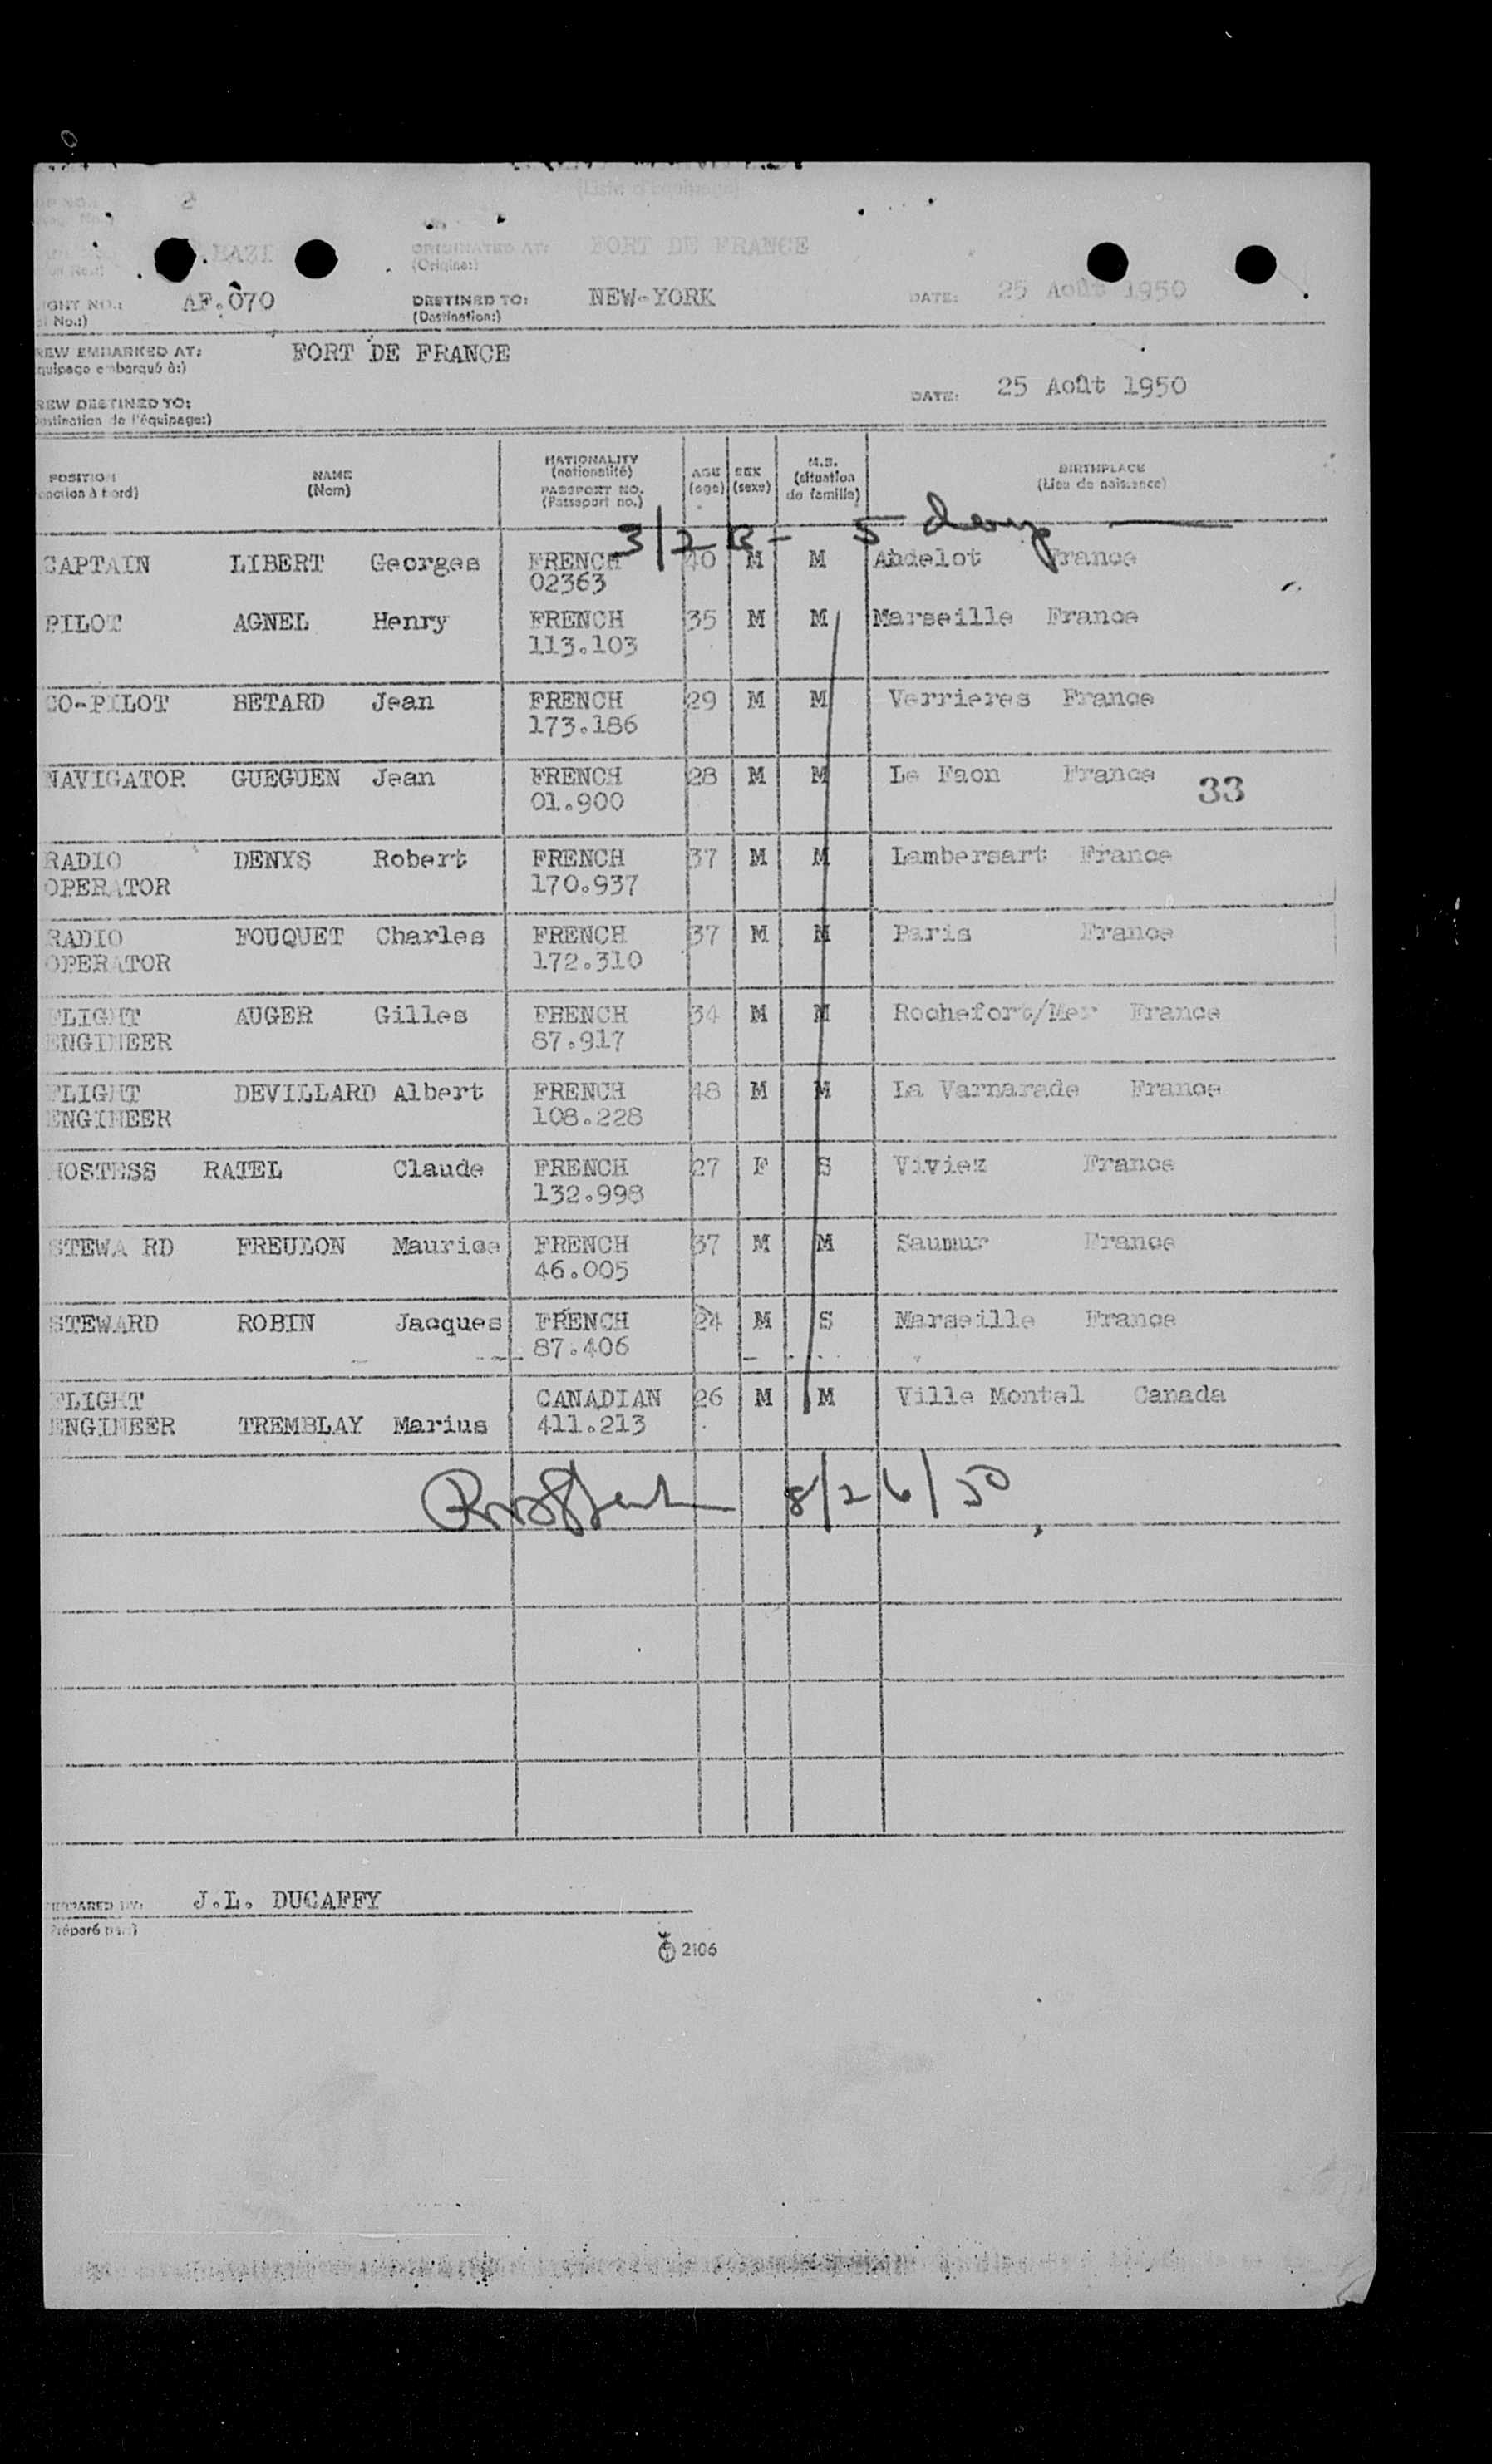 (Liste d'équipage)
2
ORIGINATED AT: FORT DE FRANCE
(Origine:)
25 Août 1950
IGHT NO.: AF.070 DESTINED TO: NEW-YORK DATE:
No.:) (Destination:)
REW EMBARKED AT: FORT DE FRANCE
quipage embarqué à:)
DATE: 25 Août 1950
REW DESTINED TO:
estination de l'équipage:)
POSITION NAME NATIONALITY AGE SEX M.S. BIRTHPLACE
onction à bord) (Nom) (nationalité) (age) (sexe) (situation de famille) (Lieu de naissance)
PASSPORT NO.
(Passeport no.)
3/2 B - 5 days
CAPTAIN LIBERT Georges FRENCH 40 M M Andelot France
02363
PILOT AGNEL Henry FRENCH 35 M M Marseille France
113.103
CO-PILOT BETARD Jean FRENCH 29 M M Verrieres France
173.186
NAVIGATOR GUEGUEN Jean FRENCH 28 M M Le Faon France 33
01.900
RADIO DENYS Robert FRENCH 37 M M Lambersart France
OPERATOR 170.937
RADIO FOUQUET Charles FRENCH 37 M M Paris France
OPERATOR 172.310
FLIGHT AUGER Gilles FRENCH 34 M M Rochefort/Mer France
ENGINEER 87.917
FLIGHT DEVILLARD Albert FRENCH 48 M M La Varnarade France
ENGINEER 108.228
HOSTESS RATEL Claude FRENCH 27 F S Viviez France
132.998
STEWA RD FREULON Maurice FRENCH 37 M M Saumur France
46.005
STEWARD ROBIN Jacques FRENCH 24 M S Marseille France
87.406
FLIGHT CANADIAN 26 M M Ville Montel Canada
ENGINEER TREMBLAY Marius 411.213
8/26/50
PREPARED BY: J.L. DUCAFFY
Préparé par:)
2106